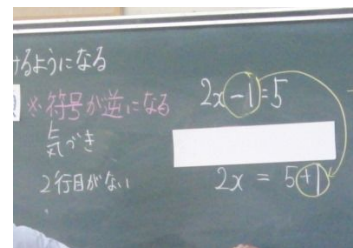 けるようになる
※符号が逆になる
気づき
2行目がない
2x-1=5
2x = 5+1